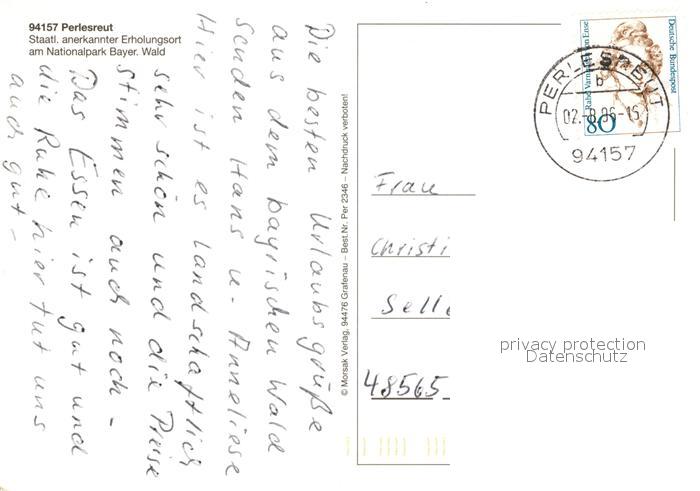 94157 Perlesreut
Staatl. anerkannter Erholungsort
am Nationalpark Bayer. Wald
Die besten Urlaubsgrüße
aus dem bayrischen Wald
senden Hans u. Anneliese
Hier ist es landschaftlich
sehr schön und die Preise
stimmen auch noch -
Das Essen ist gut und
die Ruhe hier tut uns
auch gut -
© Morsak Verlag, 94476 Grafenau – Best.Nr. Per 2346 – Nachdruck verboten!
Deutsche Bundespost
80
PERLESREUT
b
02.-8.96-15
94157
Frau
Christi
Selle
48565
privacy protection
Datenschutz